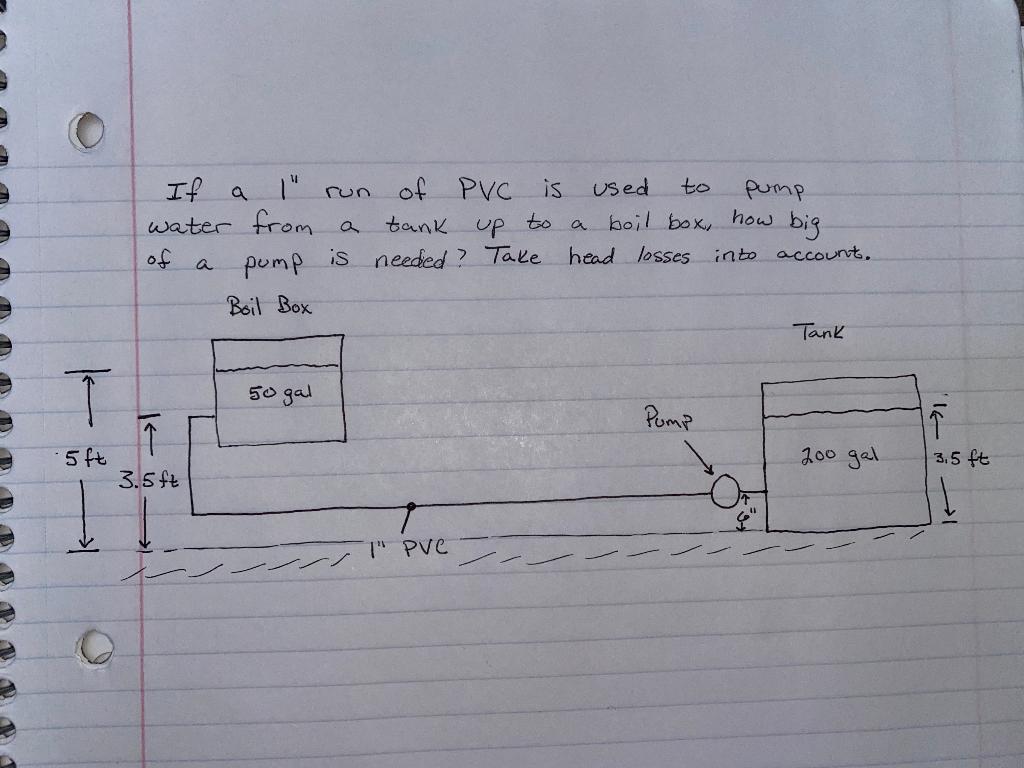 If a 1" run of PVC is used to pump
water from a tank up to a boil box, how big
of a pump is needed? Take head losses into account.
Boil Box
Tank
50 gal
Pump
5 ft
3.5 ft
200 gal
3.5 ft
6"
1" PVC